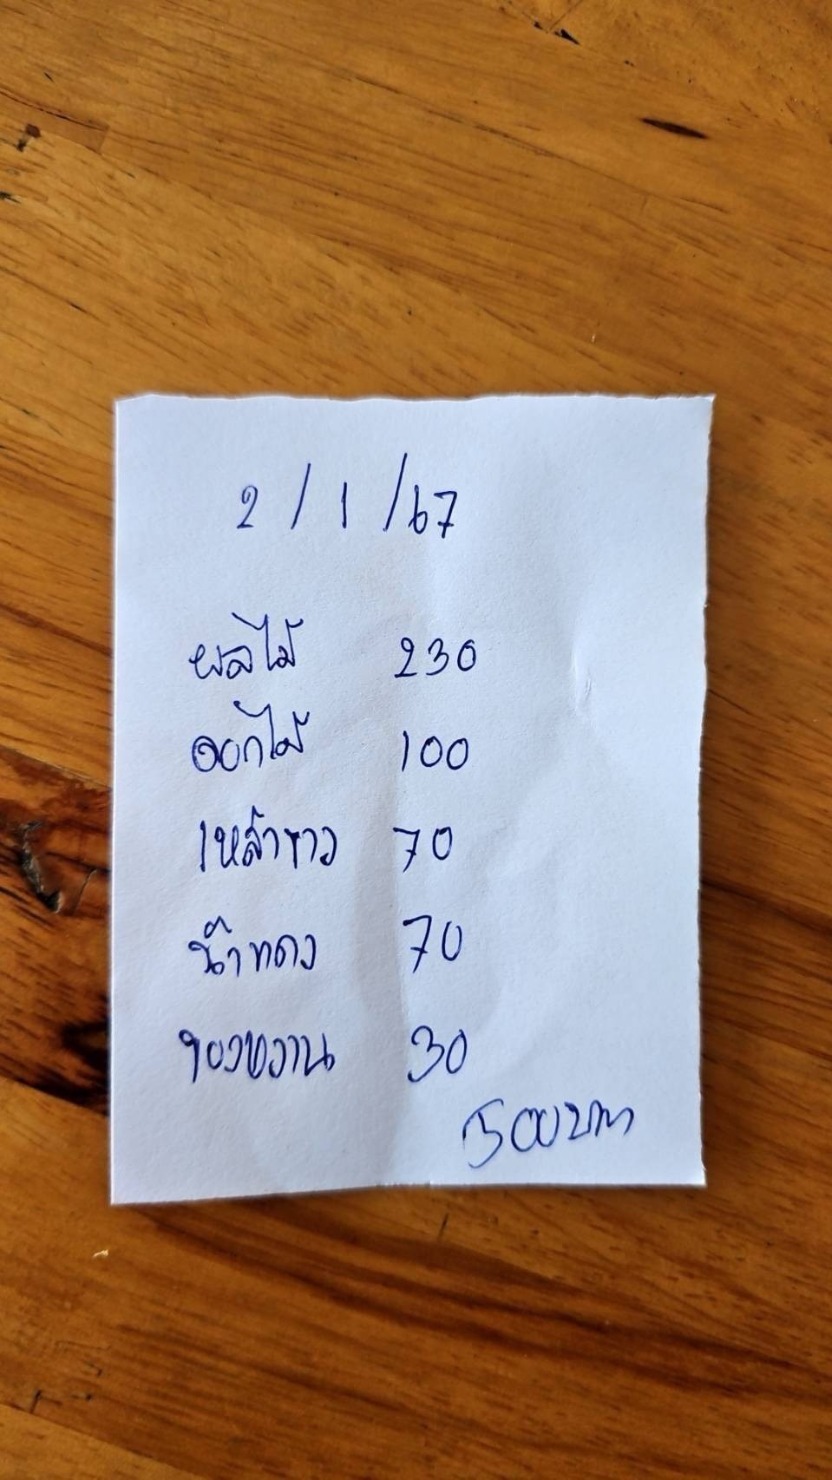 2/1/67
ผลไม้ 230
ดอกไม้ 100
เหล้าขาว 70
น้ำแดง 70
ของหวาน 30
500 บาท